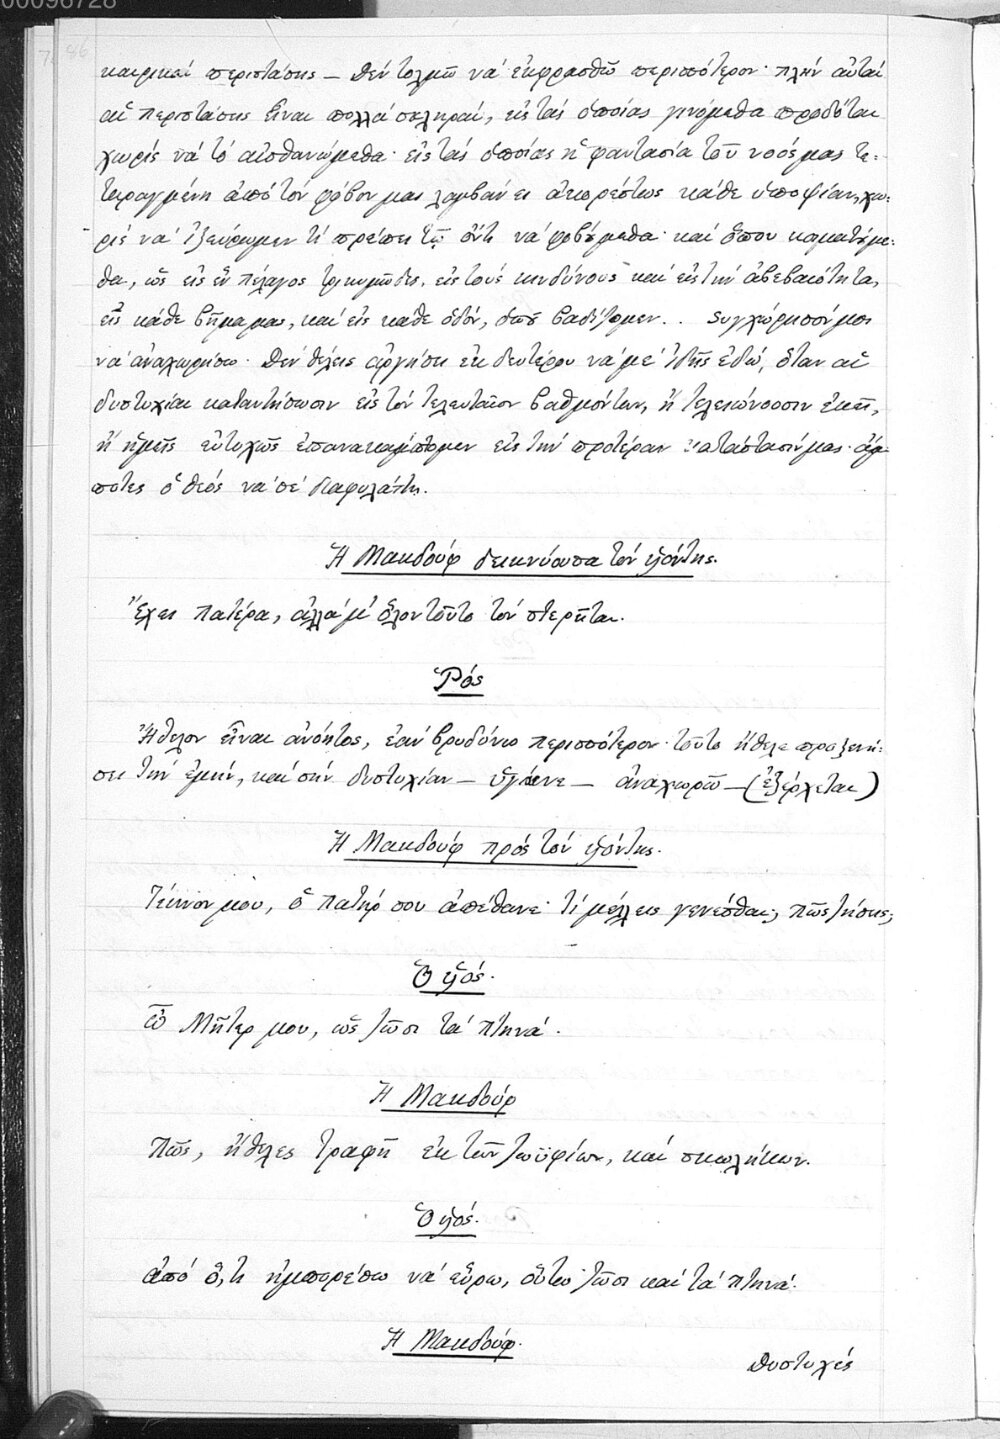 00096728
86
καιρικαί περιστάσεις — δέν τολμῶ νά ἐκφρασθῶ περισσότερον· πλήν αὐταί
αἱ περιστάσεις εἶναι πολλά σκληραί, εἰς τάς ὁποίας γινόμεθα προδόται
χωρίς νά τό αἰσθανώμεθα· εἰς τάς ὁποίας ἡ φαντασία τοῦ νοός μας τε-
ταραγμένη ἀπό τόν φόβον μας λαμβάνει ἀκορέστως κάθε ὑποψίαν, χω-
ρίς νά ἐξεύρωμεν τί πρέπει τῷ ὄντι νά φοβούμεθα· καί ὅπου κυματούμε-
θα, ὡς εἰς ἕν πέλαγος τρικυμῶδες, εἰς τούς κινδύνους καί εἰς τήν ἀβεβαιότητα,
εἰς κάθε βῆμα μας, καί εἰς κάθε ὁδόν, ὅπου βαδίζομεν.. Συγχώρησόν μοι
νά ἀναχωρήσω· δέν θέλεις ἀργήσει ἐκ δευτέρου νά μέ ἰδῇς ἐδώ, ὅταν αἱ
δυστυχίαι καταντήσωσιν εἰς τόν τελευταῖον βαθμόν των, ἤ τελειώνουσιν ἐκεῖ,
ἤ ἡμεῖς εὐτυχῶς ἐπανακάμπτομεν εἰς τήν προτέραν κατάστασίν μας· ἄμ-
ποτες ὁ θεός νά σέ διαφυλάττῃ.
Ἡ Μακδούφ δεικνύουσα τόν υἱόν της.
Ἔχει πατέρα, ἀλλά μ' ὅλον τοῦτο τόν στερεῖται.
Ῥός
Ἤθελον εἶναι ἀνόητος, ἐάν βραδύνω περισσότερον· τοῦτο ἤθελε προξενή-
σει τήν ἐμήν, καί σήν δυστυχίαν — ὑγίαινε — ἀναχωρῶ — (ἐξέρχεται)
Ἡ Μακδούφ πρός τόν υἱόν της.
Τέκνον μου, ὁ πατήρ σου ἀπέθανε· τί μέλλεις γενέσθαι; πῶς ζήσεις;
Ὁ υἱός.
ὦ Μῆτερ μου, ὡς ζῶσι τά πτηνά.
Ἡ Μακδούφ
Πῶς, ἤθελες τραφῆ ἐκ τῶν ζωϋφίων, καί σκωλήκων.
Ὁ υἱός.
ἀπό ὅ,τι ἠμπορέσω νά εὕρω, οὕτω ζῶσι καί τά πτηνά.
Ἡ Μακδούφ.
Δυστυχές